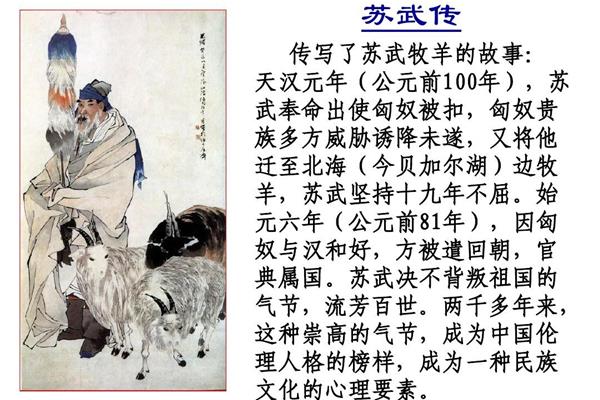 苏武传
传写了苏武牧羊的故事：
天汉元年（公元前100年），苏
武奉命出使匈奴被扣，匈奴贵
族多方威胁诱降未遂，又将他
迁至北海（今贝加尔湖）边牧
羊，苏武坚持十九年不屈。始
元六年（公元前81年），因匈
奴与汉和好，方被遣回朝，官
典属国。苏武决不背叛祖国的
气节，流芳百世。两千多年来，
这种崇高的气节，成为中国伦
理人格的榜样，成为一种民族
文化的心理要素。